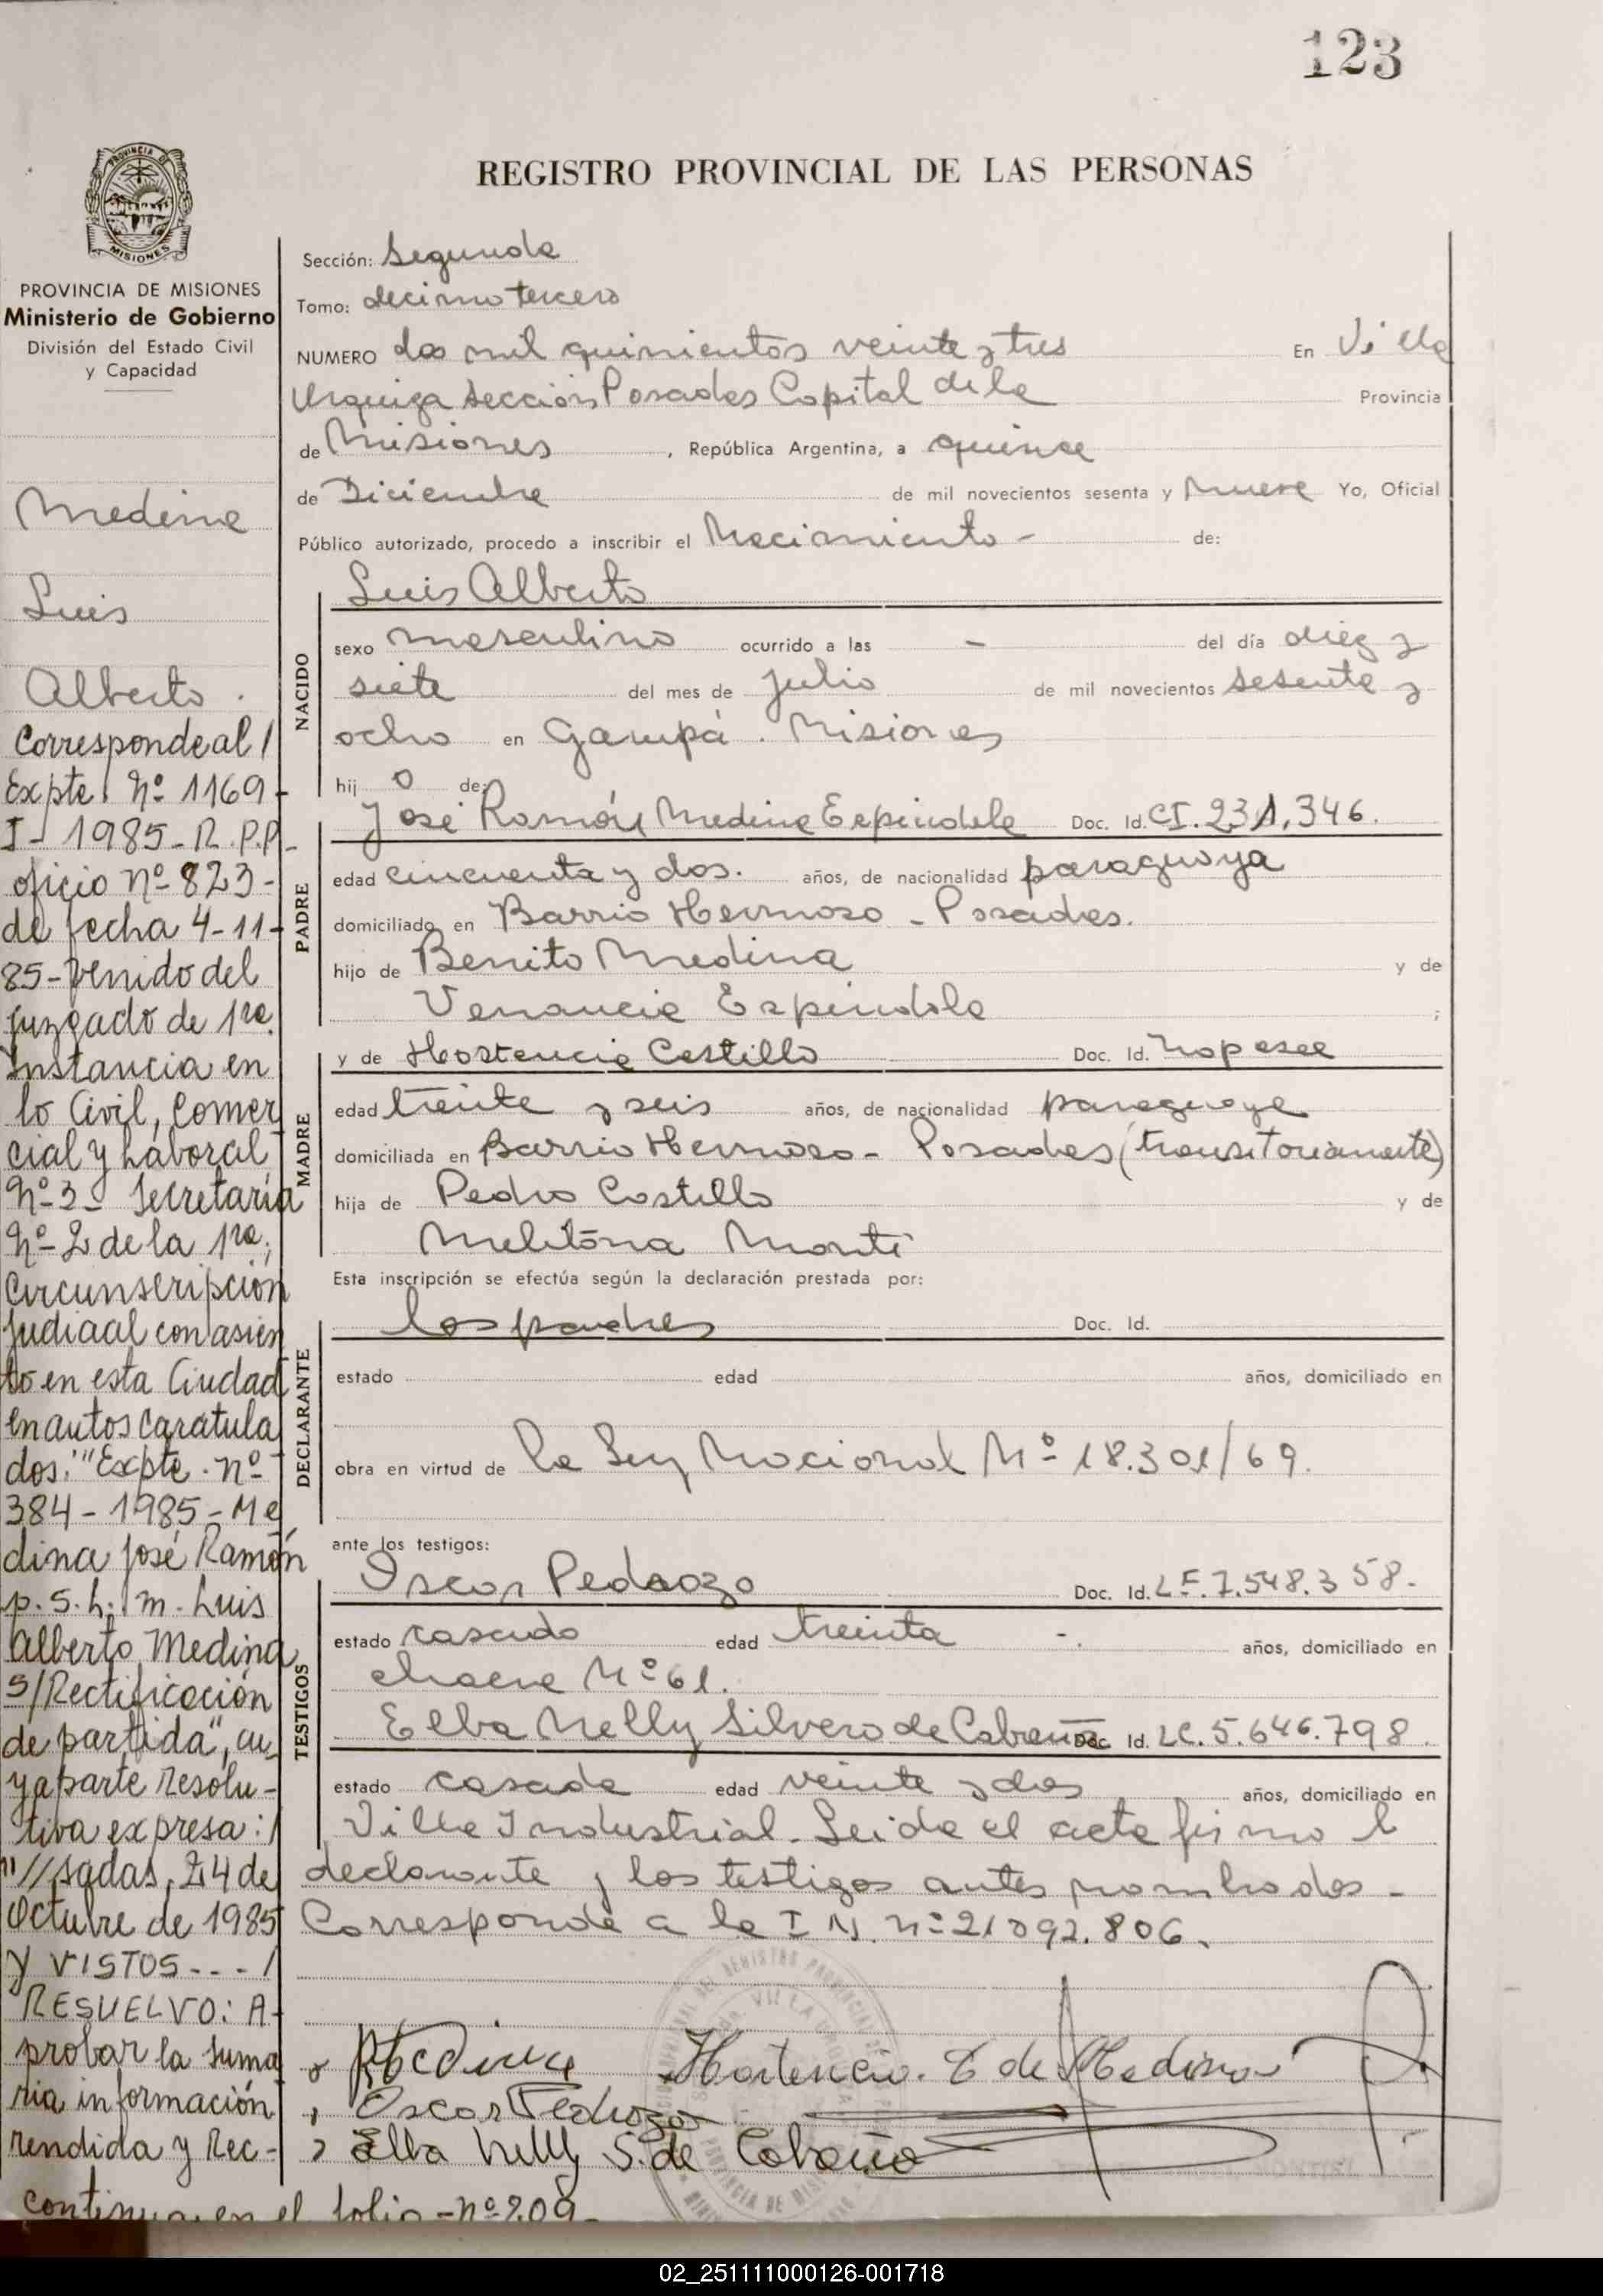 123
REGISTRO PROVINCIAL DE LAS PERSONAS
PROVINCIA DE
MISIONES
PROVINCIA DE MISIONES
Ministerio de Gobierno
División del Estado Civil
y Capacidad
Medina
Luis
Alberto.
Corresponde al /
Expte. Nº 1169-
I-1985-R.P.P.-
oficio nº 823-
de fecha 4-11-
85-venido del
juzgado de 1ra.
Instancia en
lo Civil, Comer
cial y Laboral
Nº 3- Secretaría
Nº 2 de la 1ra,
Circunscripción
Judicial con asien
to en esta Ciudad
en autos caratula
dos: "Expte. nº
384-1985-Me
dina José Ramón
p.s.h. m. Luis
Alberto Medina
S/Rectificación
de partida", cu
ya parte resolu-
tiva expresa: /
"//sadas, 24 de
Octubre de 1985
Y VISTOS...- /
RESUELVO: A-
probar la suma
ria información
rendida y Rec-
continua en el folio -nº 209-
Sección: Segunda
Tomo: decimo tercero
NUMERO dos mil quinientos veinte y tres En Villa
Urquiza Sección Posadas Capital de la Provincia
de Misiones, República Argentina, a quince
de Diciembre de mil novecientos sesenta y nueve Yo, Oficial
Público autorizado, procedo a inscribir el Nacimiento - de:
NACIDO
Luis Alberto
sexo masculino ocurrido a las - del día diez y
siete del mes de julio de mil novecientos sesenta y
ocho en Garupá. Misiones
hij o de:
PADRE
José Ramón Medina Espindola Doc. Id. CI. 231.346.
edad cincuenta y dos. años, de nacionalidad paraguaya
domiciliado en Barrio Hermoso - Posadas.
hijo de Benito Medina y de
Venancia Espindola ;
MADRE
y de Hostencia Castillo Doc. Id. no posee
edad treinta y seis años, de nacionalidad paraguaya
domiciliada en Barrio Hermoso - Posadas (transitoriamente)
hija de Pedro Castillo y de
Melitona Monti
Esta inscripción se efectúa según la declaración prestada por:
DECLARANTE
los padres Doc. Id.
estado edad años, domiciliado en
obra en virtud de la Ley Nacional Nº 18.301/69.
ante los testigos:
TESTIGOS
Oscar Pedrozo Doc. Id. L.E. 7.548.358-
estado casado edad treinta -. años, domiciliado en
chacra Nº 61.
Elba Nelly Silvero de Cabaña Doc. Id. LC. 5.646.798.
estado casada edad veinte y dos años, domiciliado en
Villa Industrial. Leida el acta firma l
declarante y los testigos antes nombrados -
Corresponde a la I N. nº 21092.806.
Hortencia. C de Medina
Oscar Pedrozo
Elba Nelly S. de Cabaña
02_251111000126-001718